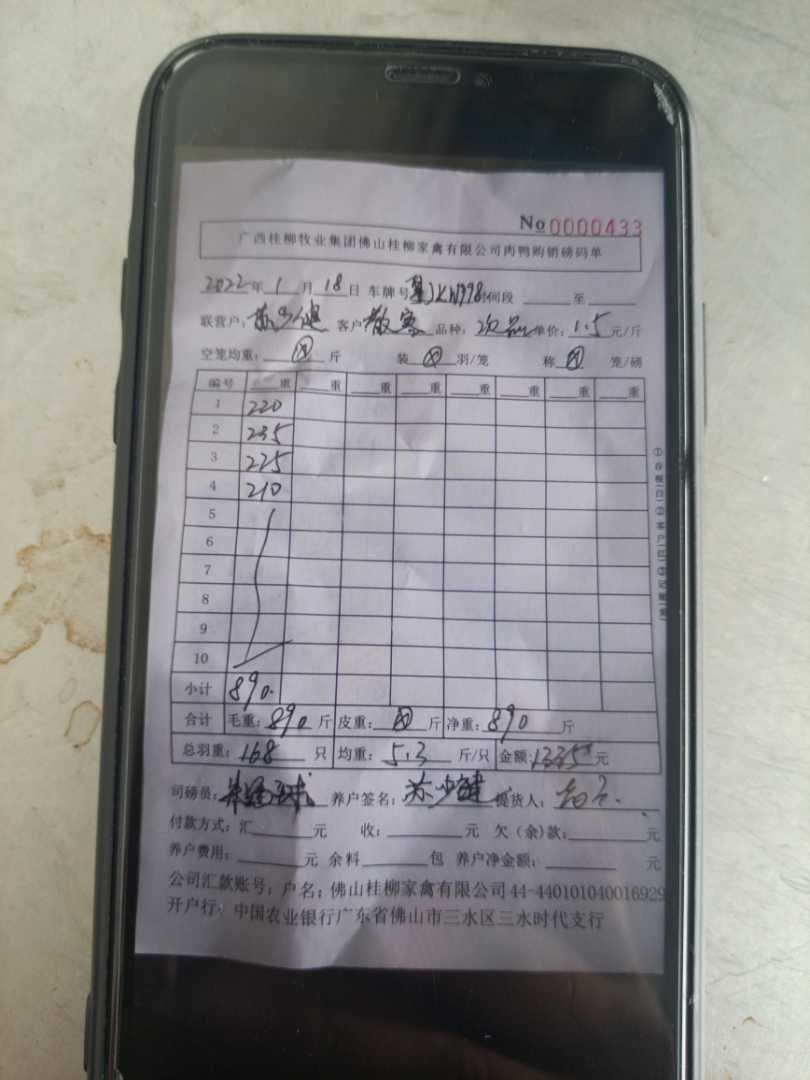 No 0000433
广西桂柳牧业集团佛山桂柳家禽有限公司肉鸭购销磅码单
2022年 1 月 18 日 车牌号 粤JKW998 时间段 至
联营户: 苏少健 客户 散客 品种: 次品 单价: 1.5 元/斤
空笼均重: 斤 装 羽/笼 称 笼/磅
编号 重 重 重 重 重 重 重 重
1 220
2 235
3 225
4 210
5
6
7
8
9
10
小计 890.
合计 毛重: 890 斤 皮重: 斤 净重: 890 斤
总羽重: 168 只 均重: 5.3 斤/只 金额: 1335 元
司磅员: 养户签名: 苏少健 提货人:
付款方式: 汇 元 收: 元 欠(余)款: 元
养户费用: 元 余料 包 养户净金额: 元
公司汇款账号: 户名: 佛山桂柳家禽有限公司 44-440101040016929
开户行: 中国农业银行广东省佛山市三水区三水时代支行